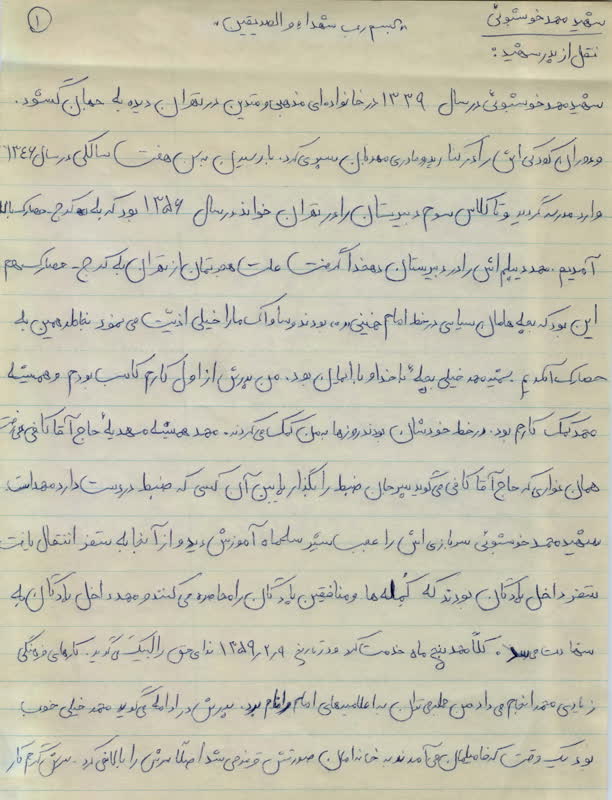 ①
شهید محمد خوشبوئی
«بسم رب شهداء و الصدیقین»
نقل از پدر شهید:
شهید محمد خوشبوئی در سال ۱۳۳۹ در خانواده‌ای مذهبی و متدین در تهران دیده به جهان گشود.
و دوران کودکی اش را در کنار پدر و مادری مهربان سپری کرد. با رسیدن به سن هفت سالگی در سال ۱۳۴۶
وارد مدرسه گردید و تا کلاس سوم دبیرستان را در تهران خواند در سال ۱۳۵۶ بود که به کرج حصارک بالا
آمدیم. محمد دیپلم اش را در دبیرستان دهخدا گرفت علت هجرتمان از تهران به کرج - حصارک هم
این بود که بچه هامان سیاسی در خط امام خمینی «ره» بودند و ساواک ما را خیلی اذیت می نمود بخاطر همین به
حصارک آمدیم محمد خیلی بچهٔ با خدا و با ایمان بود. من پدرش از اول کارم کاسب بودم و همیشه
محمد کمک کارم بود. در خط خودشان بودند روزها به من کمک می کردند. محمد همیشه مهدیهٔ حاج آقا کافی می رفت
همان نواری که حاج آقا کافی می گوید پسر جان ضبط را بگذار پایین آن کسی که ضبط در دست دارد محمد است
شهید محمد خوشبوئی سربازی اش را عجب شیر سه ماه آموزش دید و از آنجا به سقز انتقال یافت
سقز داخل پادگان بودند که کومله ها و منافقین پادگان را محاصره می کنند و محمد داخل پادگان به
شهادت می رسد. کلاً محمد پنج ماه خدمت کرد و در تاریخ ۱۳۵۹٫۲٫۹ ندای حق را لبیک می گوید. کارهای فرهنگی
زیادی محمد انجام می داد من جمله می توان به اعلامیه های امام را نام برد. پدرش در ادامه می گوید محمد خیلی خوب
بود یک وقت که فامیلمان می آمدند به خانه امان صورتش قرمز می شد اصلاً سرش را بالا نمی کرد. سرش گرم کار